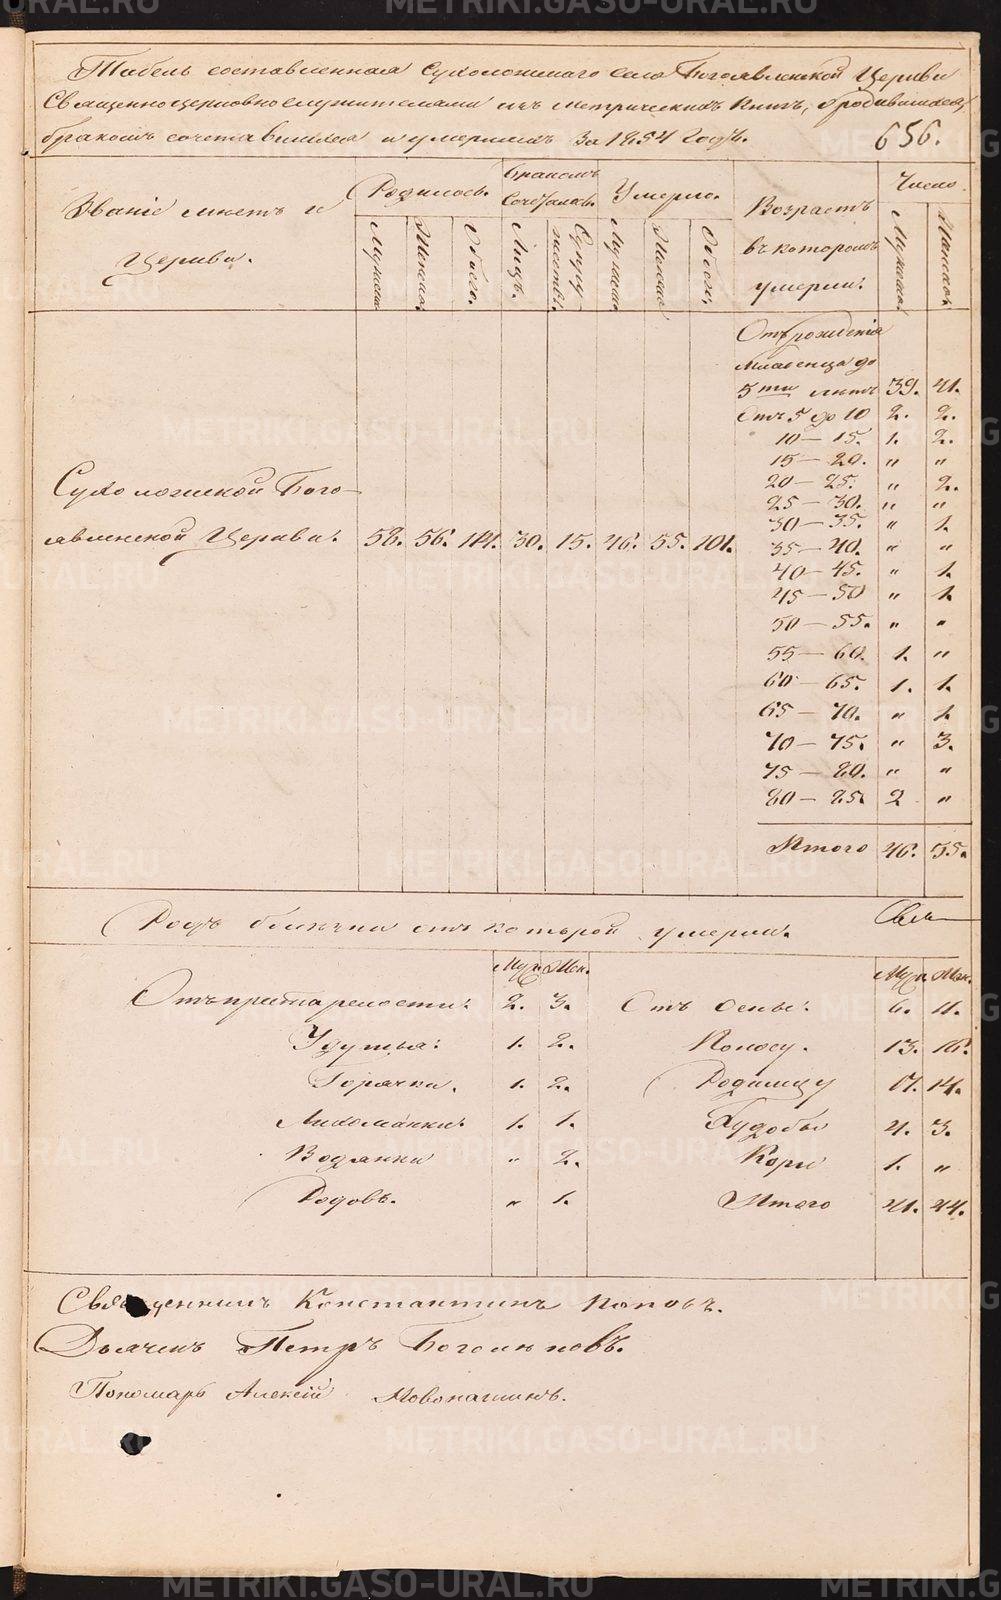 Табель составленная Сухоложскаго села Богоявленской Церкви
Священноцерковнослужителями изъ метрическихъ книгъ, о родившихся,
бракомъ сочетавшихся и умершихъ за 1854 годъ.
656.
Званіе мѣстъ и Церкви.
Родилось.
Бракомъ Сочеталось.
Умерло.
Возрастъ въ которомъ умерли:
Число
Мужска. Женска. Обоего. Лицъ. Супружествъ. Мужска Женска Обоего. Мужска. Женска.
Отъ рожденія
Младенца до
5ти лѣтъ 39. 41.
Отъ 5 до 10 2. 2.
10 — 15. 1. 2.
15 — 20. " "
20 — 25. " 2.
25 — 30. " "
30 — 35. " 1.
35 — 40. " "
40 — 45. " 1.
45 — 50 " 1.
50 — 55. " "
55 — 60. 1. "
60 — 65. 1. 1.
65 — 70. " 1.
70 — 75. " 3.
75 — 80. " "
80 — 85. 2 "
Итого 46. 55.
Сухоложской Бого-
явленской Церкви. 58. 56. 114. 30. 15. 46. 55. 101.
Родъ болѣзни отъ которой умерли.
Муж. Жен. Муж. Жен.
Отъ престарелости: 2. 3. Отъ Оспы: 6. 11.
Удушья: 1. 2. Поносу. 13. 16.
Горячки. 1. 2. Родимцу 17. 14.
Лихоманки: 1. 1. Худобы 4. 3.
Водянки " 2. Кори 1. "
Родовъ. " 1. Итого 41. 44.
Священникъ Константинъ Поповъ.
Дьячекъ Петръ Боголѣповъ.
Пономарь Алексій
METRIKI.GASO-URAL.RU